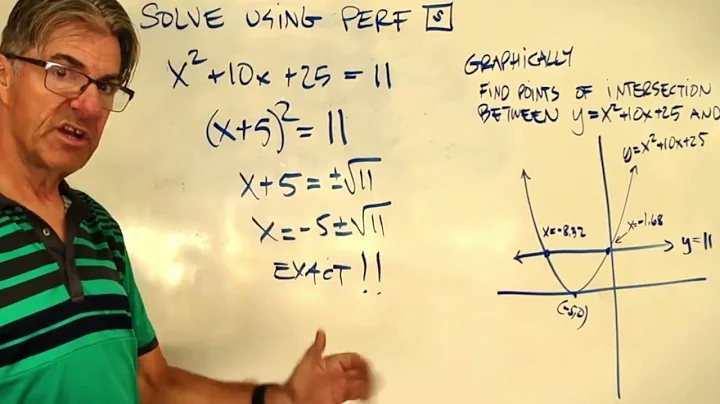 SOLVE USING PERF [S]
x² + 10x + 25 = 11
(x+5)² = 11
x + 5 = ±√11
x = -5 ± √11
EXACT!!
GRAPHICALLY
FIND POINTS OF INTERSECTION
BETWEEN y = x² + 10x + 25 AND
y = x² + 10x + 25
x = -8.32
x = -1.68
y = 11
(-5,0)